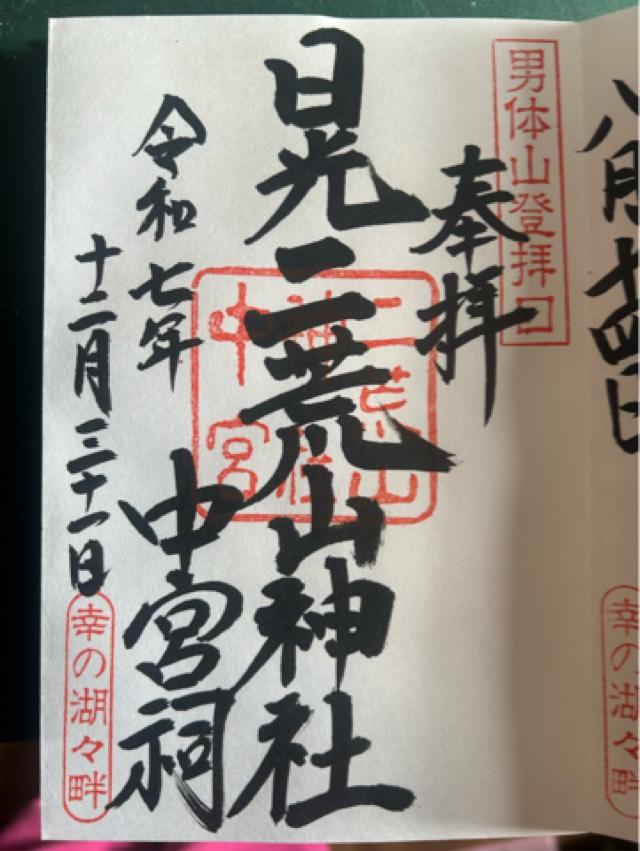 八月十四日
幸の湖々畔
男体山登拝口
奉拝
日光二荒山神社
中宮祠
二荒山
神社
中宮
令和七年
十二月三十一日
幸の湖々畔